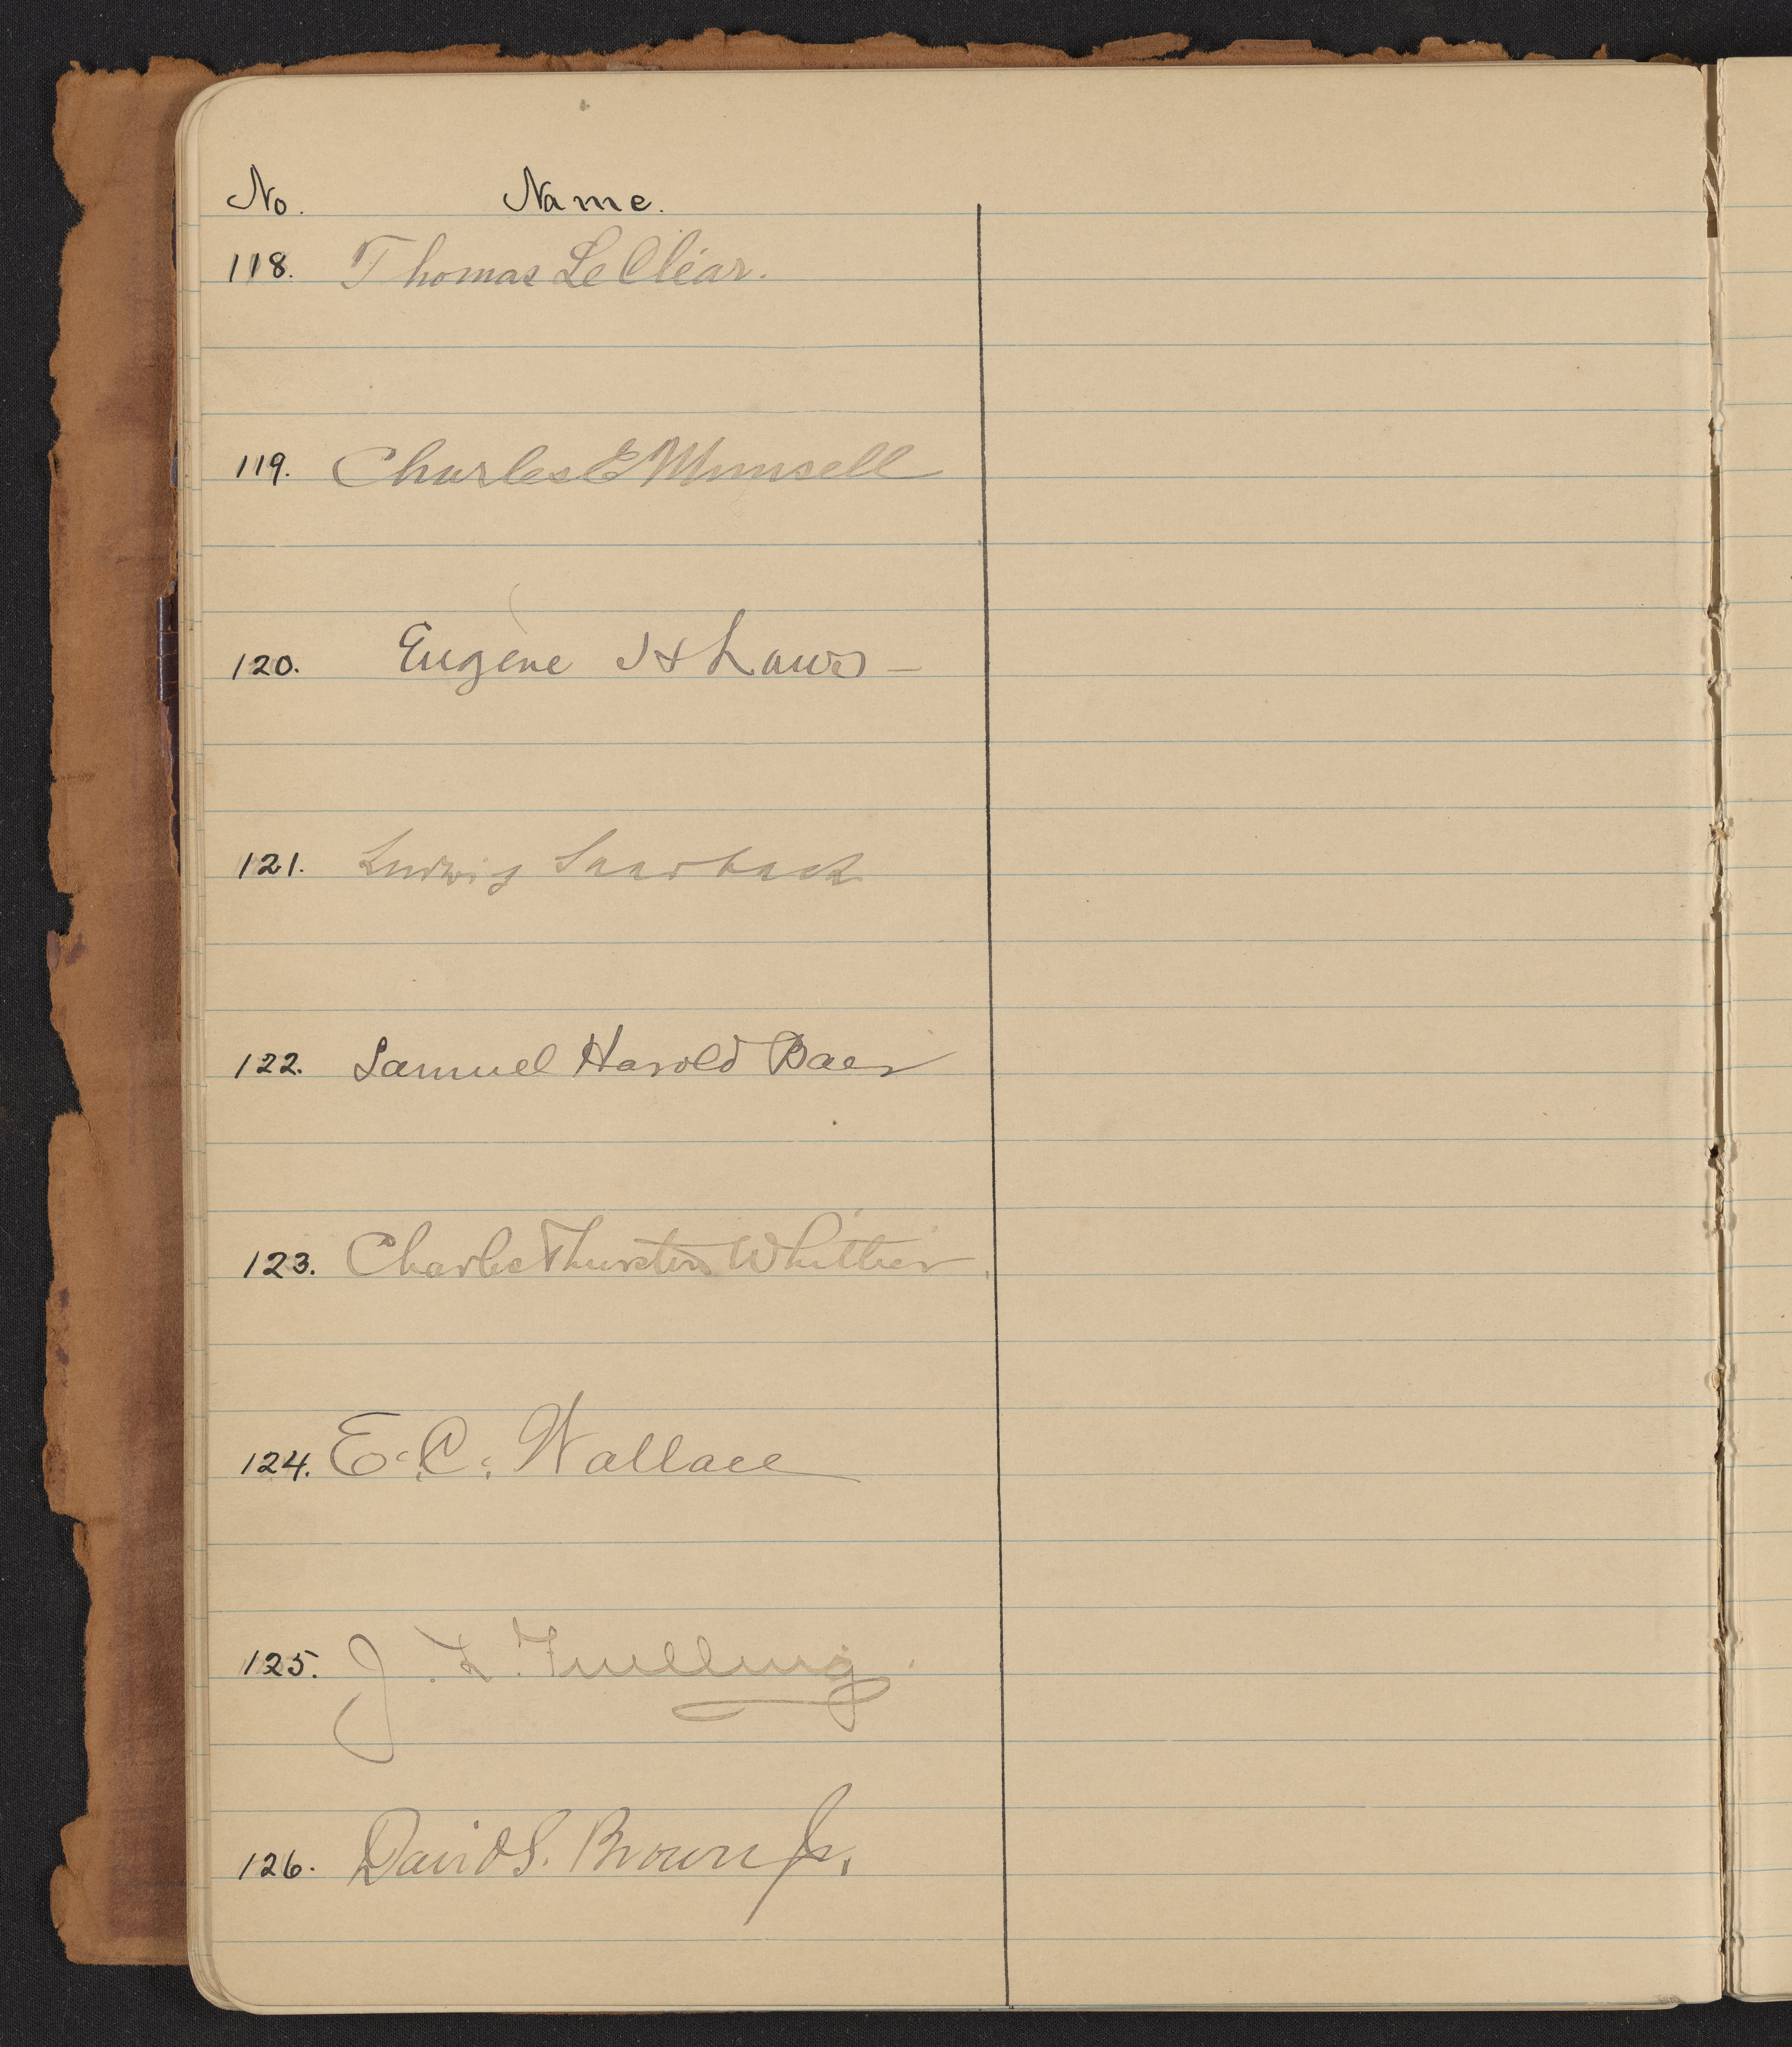 No. Name.
118. Thomas Le Clear.
119. Charles E Munsell
120. Eugene H Laws
121. Ludwig Saarbach
122. Samuel Harold Baer
123. Charles Thurston Whittier.
124. E. C. Wallace
125. J. L. Fuelling.
126. David S. Brown Jr.